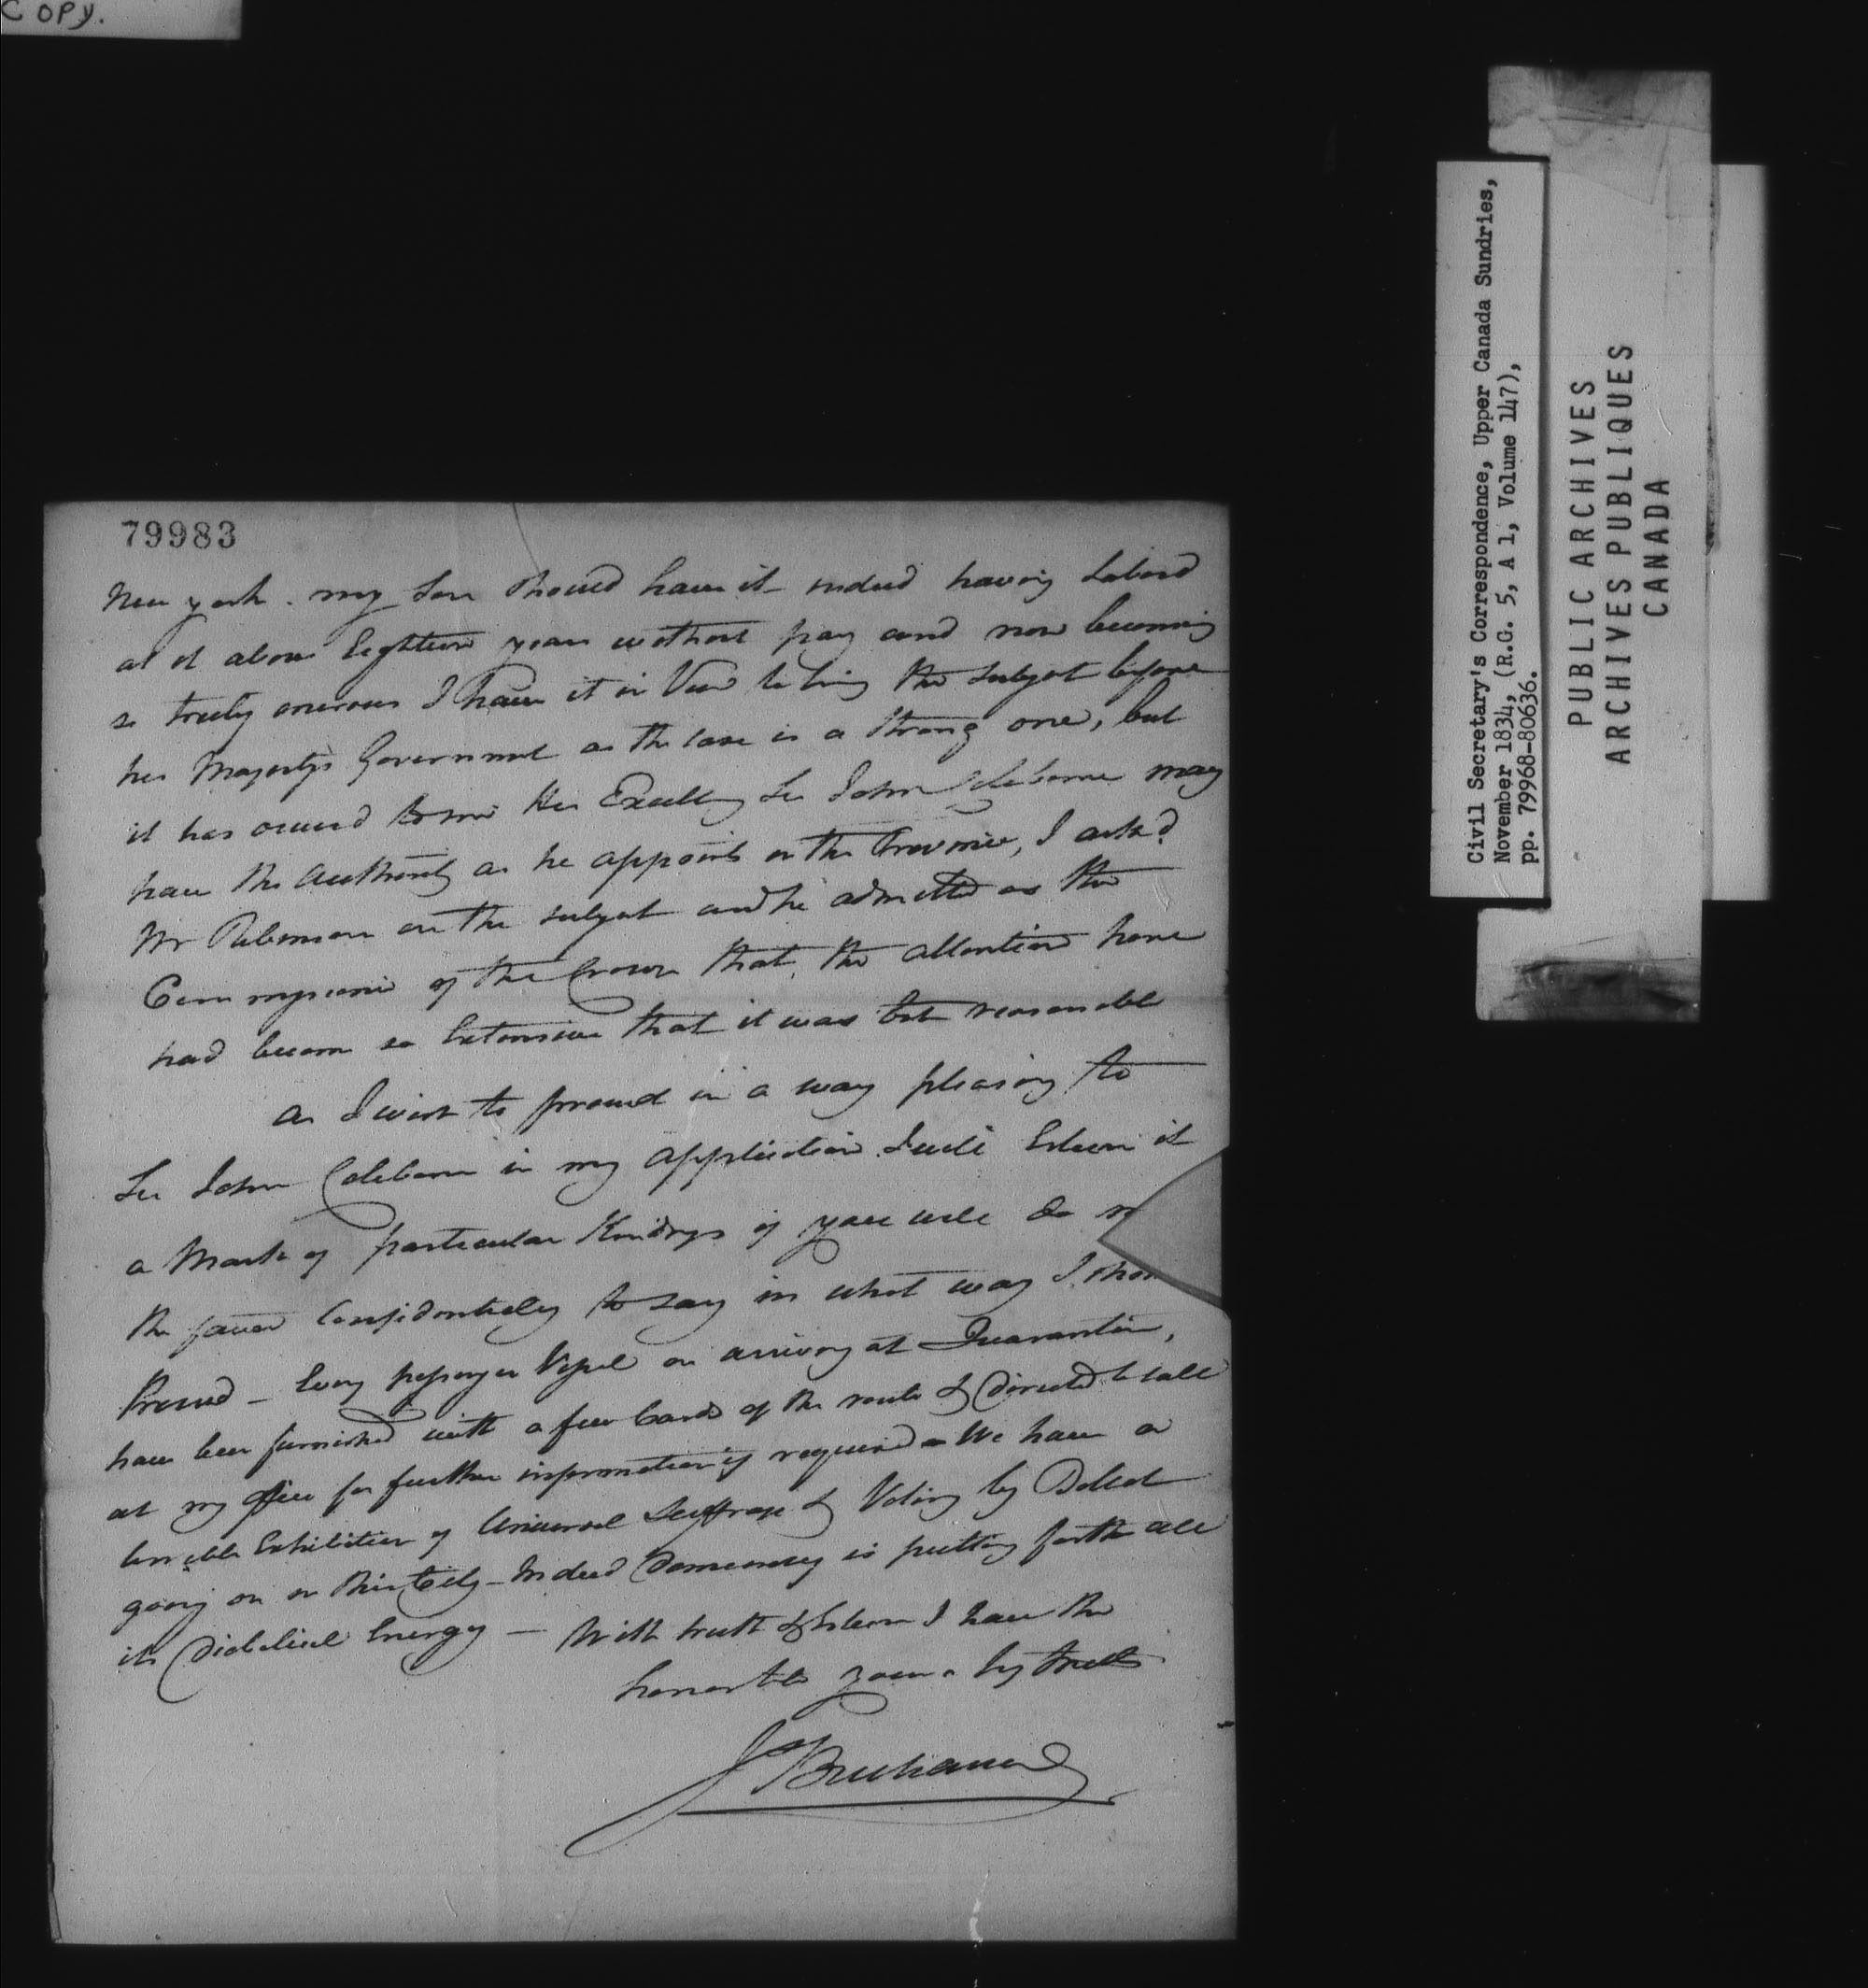 COPY.
79983
New york. my Son should have it indeed having labord
at it above Eighteen years without pay and now becoming
so truly onerous I have it in View to bring the subject before
his Majestys Government as the case is a strong one, but
it has occurred to me His Excelly Sir John Colborne may
have the authority as he appoints in the Province, I askd
Mr Robinson on the subject and he admitted as the
Commissioner of the Crown that the attention here
had become so Extensive that it was but reasonable
As I wish to proceed in a way pleasing to
Sir John Colborne in my application I will Esteem it
a Mark of particular Kindness if you will do
the favor Confidentially to say in what way I
Proceed - Every passenger Vessel on arriving at Quarantine,
have been furnished with a few Cards of the route & directed to call
at my office for further information if required - We have a
terrible Exhibition of Universal Suffrage & Voting by Ballot
going on in this City - Indeed Democracy is putting forth all
its Diabolical Energy - With truth & Esteem I have the
honor to be yours
J Buchanan
Civil Secretary's Correspondence, Upper Canada Sundries,
November 1834, (R.G. 5, A 1, Volume 147),
pp. 79968-80636.
PUBLIC ARCHIVES
ARCHIVES PUBLIQUES
CANADA